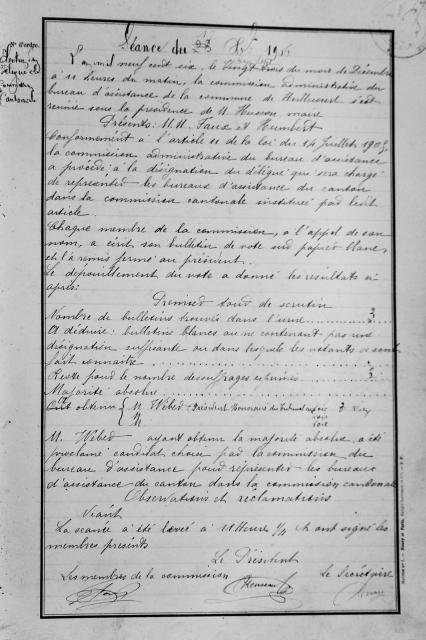 Séance du 23 Xbre 1906
N° d'ordre
L'an mil neuf cent six, le Vingt trois du mois de Décembre
à 11 heures du matin, la commission administrative du
bureau d'assistance de la commune de s'est
réunie sous la présidence de M. Husson, maire
Présents: M.M. Faux et Humbert
Conformément à l'article 11 de la loi du 14 Juillet 1905,
la commission administrative du bureau d'assistance
a procédé à la désignation du délégué qui sera chargé
de représenter les bureaux d'assistance du canton
dans la commission cantonale instituée par ledit
article.
Chaque membre de la commission, à l'appel de son
nom, a écrit son bulletin de vote sur papier blanc,
et l'a remis fermé au président.
Le dépouillement du vote a donné les résultats ci-
après:
Premier tour de scrutin
Nombre de bulletins trouvés dans l'urne 3
A déduire: bulletins blancs ou ne contenant pas une
désignation suffisante ou dans lesquels les votants se sont
fait connaître
Reste pour le nombre de suffrages exprimés 3
Majorité absolue
Ont obtenu { M. Weber Président Honoraire du Tribunal 3 voix
M. Weber ayant obtenu la majorité absolue, a été
proclamé candidat choisi par la commission du
bureau d'assistance pour représenter les bureaux
d'assistance du canton dans la commission cantonale
Observations et réclamations
Néant
La séance a été levée à 11 Heures 1/4 & ont signé les
membres présents
Le Président
Les membres de la commission
Le Secrétaire